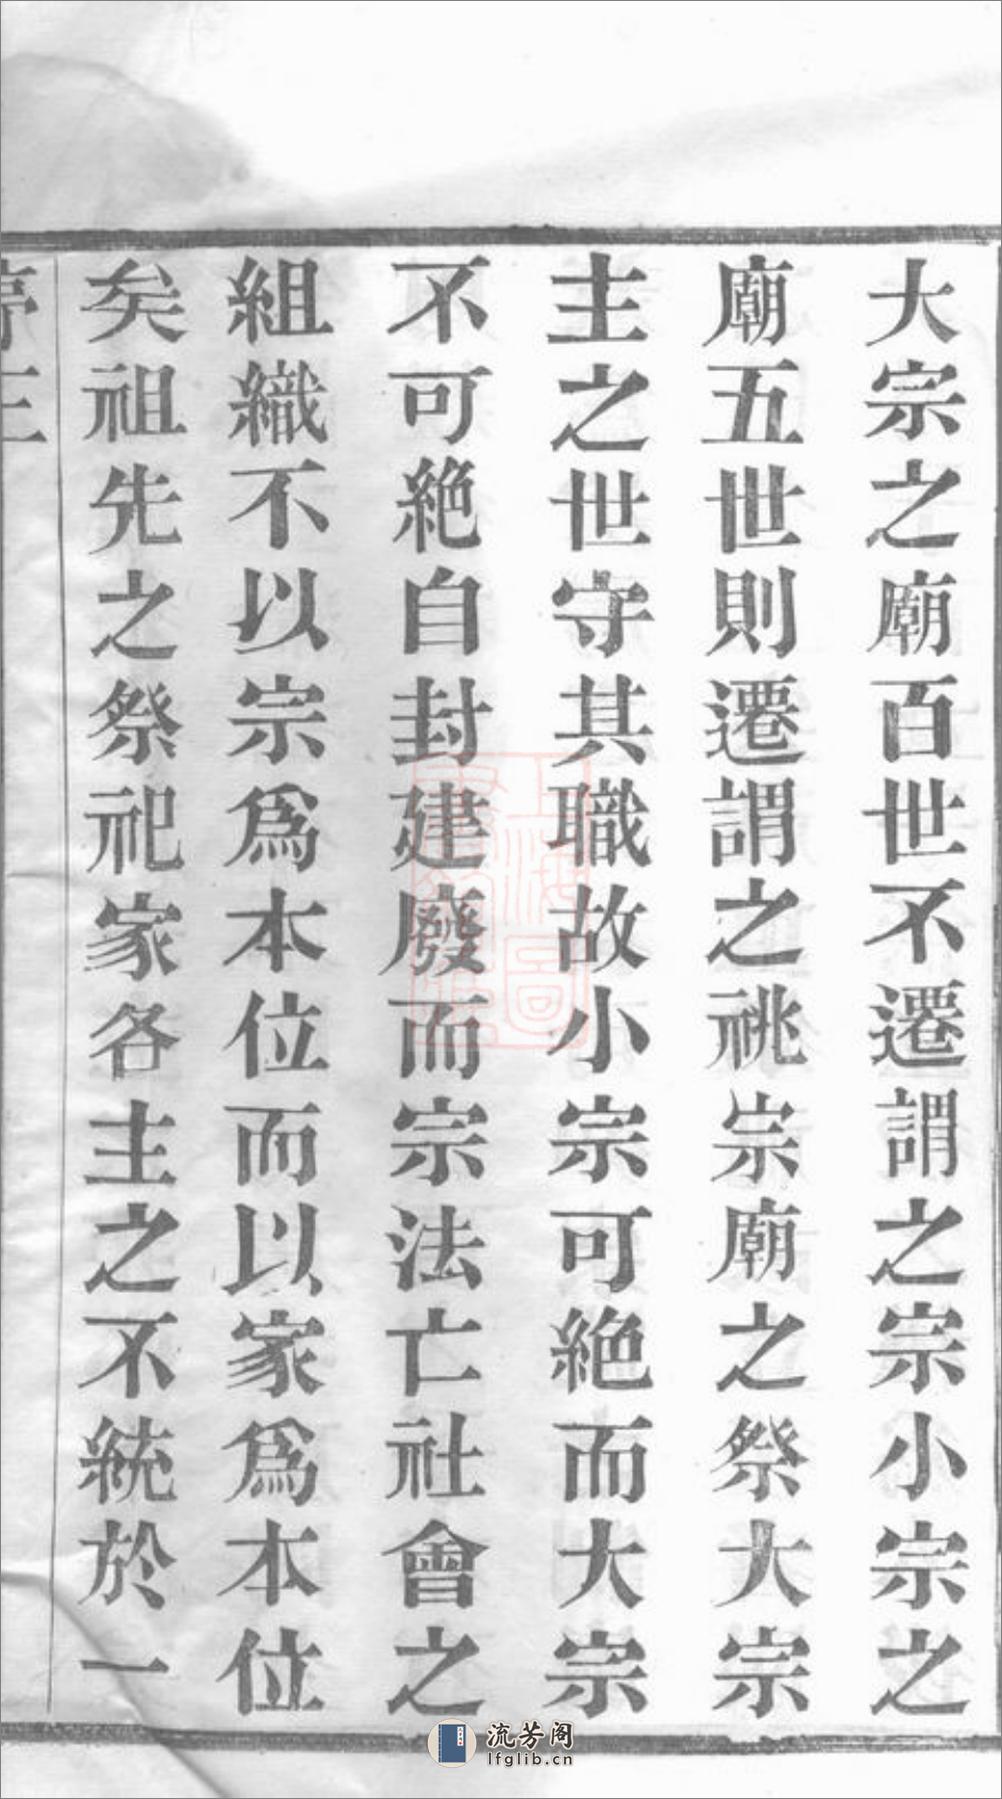 大宗之廟百世不遷謂之宗小宗之
廟五世則遷謂之祧宗廟之祭大宗
主之世守其職故小宗可絶而大宗
不可絶自封建廢而宗法亡社會之
組織不以宗爲本位而以家爲本位
矣祖先之祭祀家各主之不統於一
上海圖
流芳阁
lfglib.cn